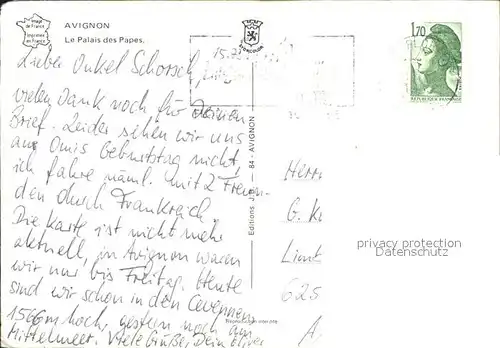 Image
de France
Imprimée
en France
AVIGNON
Le Palais des Papes.
Lieber Onkel Schorsch,
vielen Dank noch für Deinen
Brief. Leider sehen wir uns
an Omis Geburtstag nicht,
ich fahre näml. mit 2 Freun-
den durch Frankreich.
Die Karte ist nicht mehr
aktuell, in Avignon waren
wir nur bis Freitag. Heute
sind wir schon in den Cevennen,
1566m hoch, gestern noch am
Mittelmeer. Viele Grüße, Dein Oliver
Editions J. 84 - AVIGNON
1,70
REPUBLIQUE FRANÇAISE
Herrn
G. K
625
privacy protection
Datenschutz